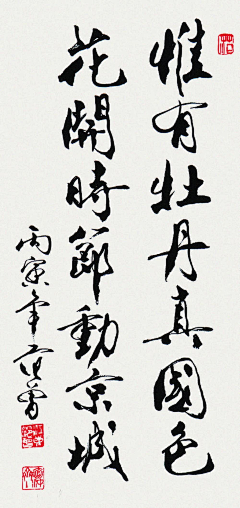 惟有牡丹真國色
花開時節動京城
丙寅年 范曾